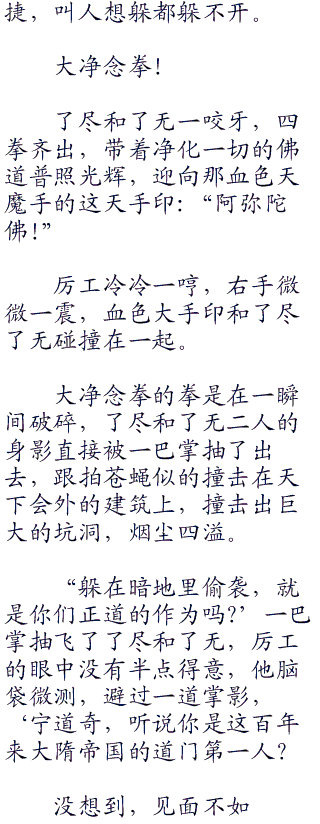 捷，叫人想躲都躲不开。
大净念拳！
了尽和了无一咬牙，四
拳齐出，带着净化一切的佛
道普照光辉，迎向那血色天
魔手的这天手印：“阿弥陀
佛！”
厉工冷冷一哼，右手微
微一震，血色大手印和了尽
了无碰撞在一起。
大净念拳的拳是在一瞬
间破碎，了尽和了无二人的
身影直接被一巴掌抽了出
去，跟拍苍蝇似的撞击在天
下会外的建筑上，撞击出巨
大的坑洞，烟尘四溢。
“躲在暗地里偷袭，就
是你们正道的作为吗？’一巴
掌抽飞了了尽和了无，厉工
的眼中没有半点得意，他脑
袋微测，避过一道掌影，
‘宁道奇，听说你是这百年
来大隋帝国的道门第一人？
没想到，见面不如